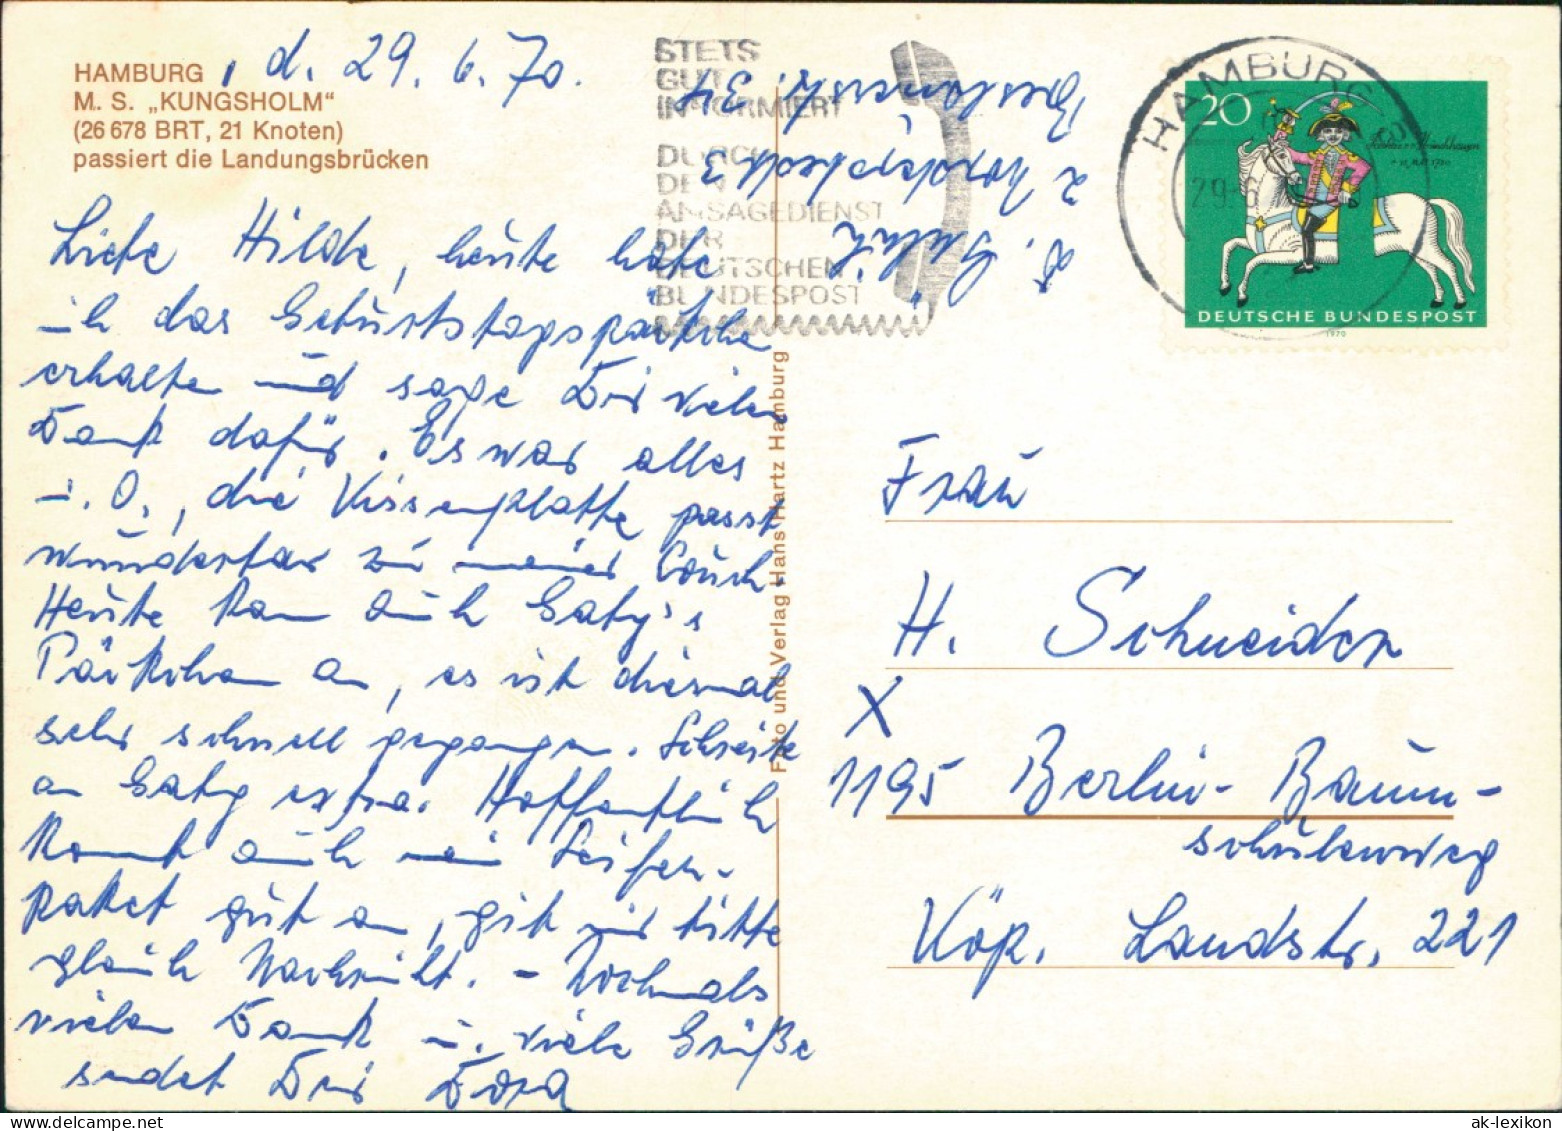 HAMBURG, d. 29.6.70.
M. S. „KUNGSHOLM“
(26 678 BRT, 21 Knoten)
passiert die Landungsbrücken
Liebe Hilde, heute habe
ich das Geburtstagspäckche
erhalten und sage Dir vielen
Dank dafür. Es war alles
i. O., die Kissenplatte passt
wunderbar zu meiner Couch
Heute kam auch Gaby's
Päckchen an, es ist diesmal
sehr schnell gegangen. Schreibe
an Gaby extra. Hoffentlich
kommt auch mein Seifen-
paket gut an, gib mir bitte
gleich Nachricht. - Nochmals
vielen Dank u. viele Grüße
sendet Dir Dora
STETS
GUT
INFORMIERT
DURCH
DEN
ANSAGEDIENST
DER
DEUTSCHEN
BUNDESPOST
2 Norderstedt 3
34
Foto und Verlag Hans Hartz Hamburg
HAMBURG
29.6.
20
DEUTSCHE BUNDESPOST
1970
Frau
H. Schneider
X
1195 Berlin-Baum-
schulenweg
Köp. Landstr. 221
ak-lexikon.com